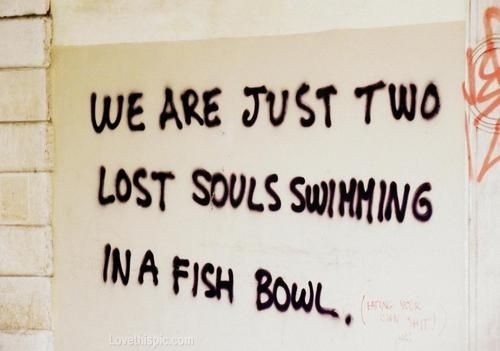 WE ARE JUST TWO
LOST SOULS SWIMMING
IN A FISH BOWL.
(EATING YOUR
OWN SHIT!)
Lovethispic.com